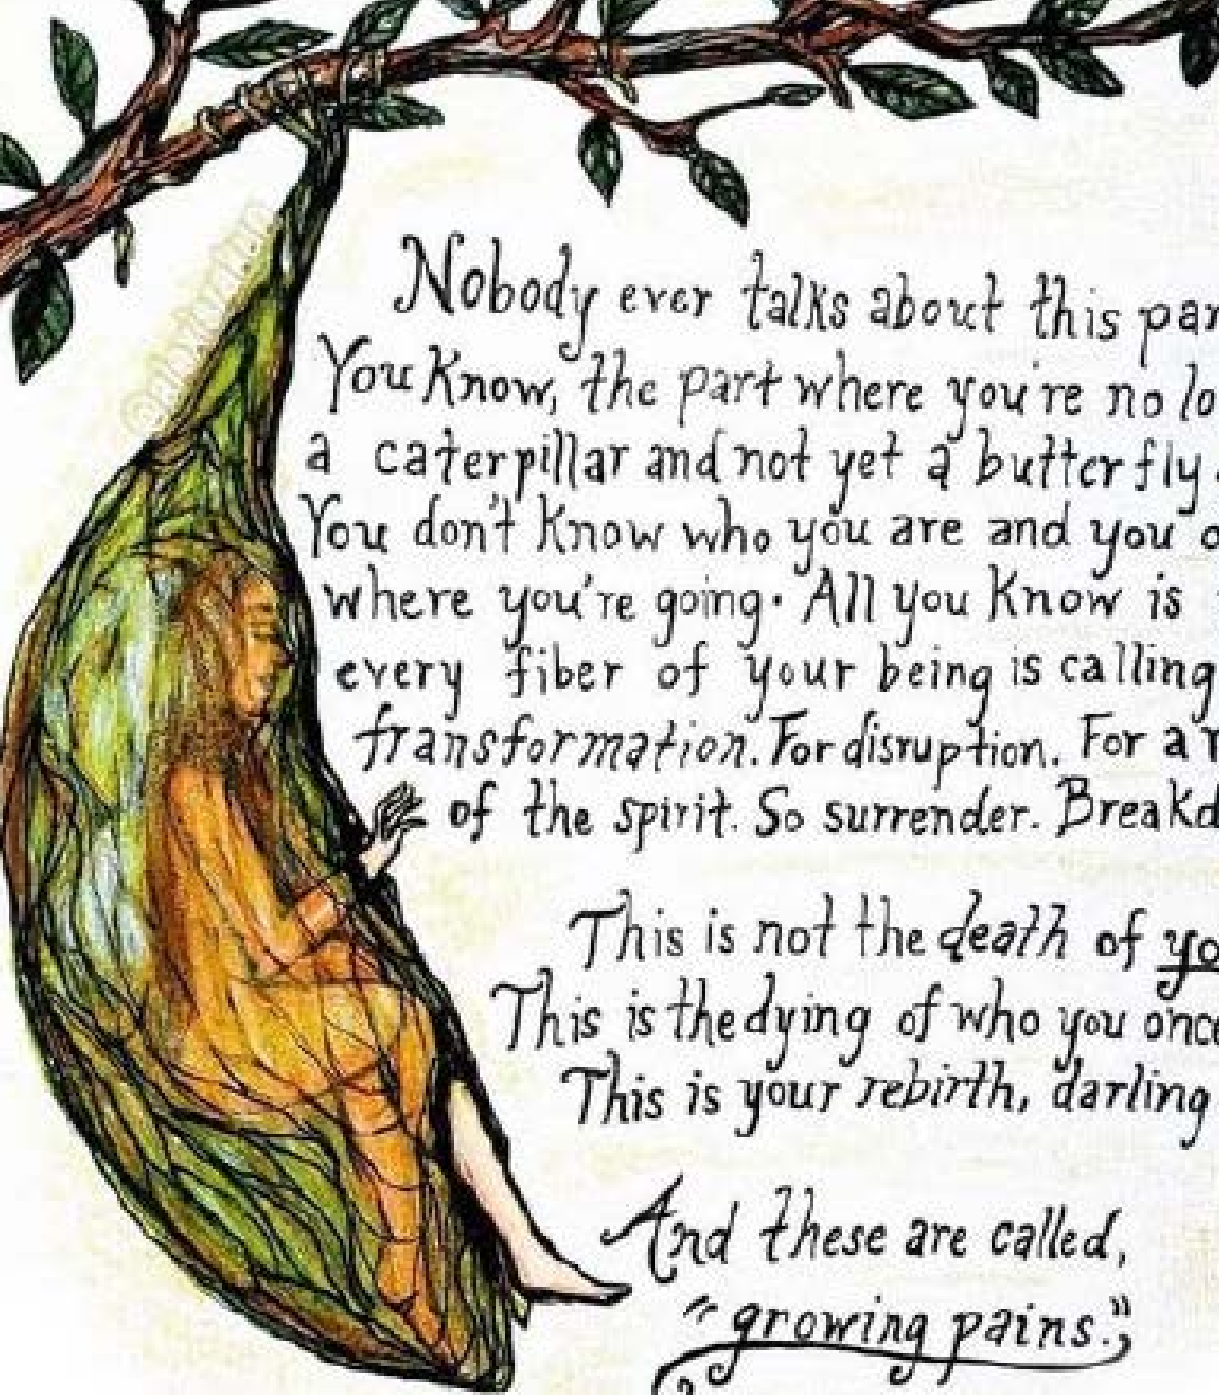 Nobody ever talks about this par
You Know, the part where you're no lo
a caterpillar and not yet a butterfly.
You don't Know who you are and you d
where you're going. All you Know is
every fiber of your being is calling
transformation. For disruption. For a r
of the spirit. So surrender. Breakd
This is not the death of yo
This is the dying of who you once
This is your rebirth, darling
And these are called,
"growing pains."